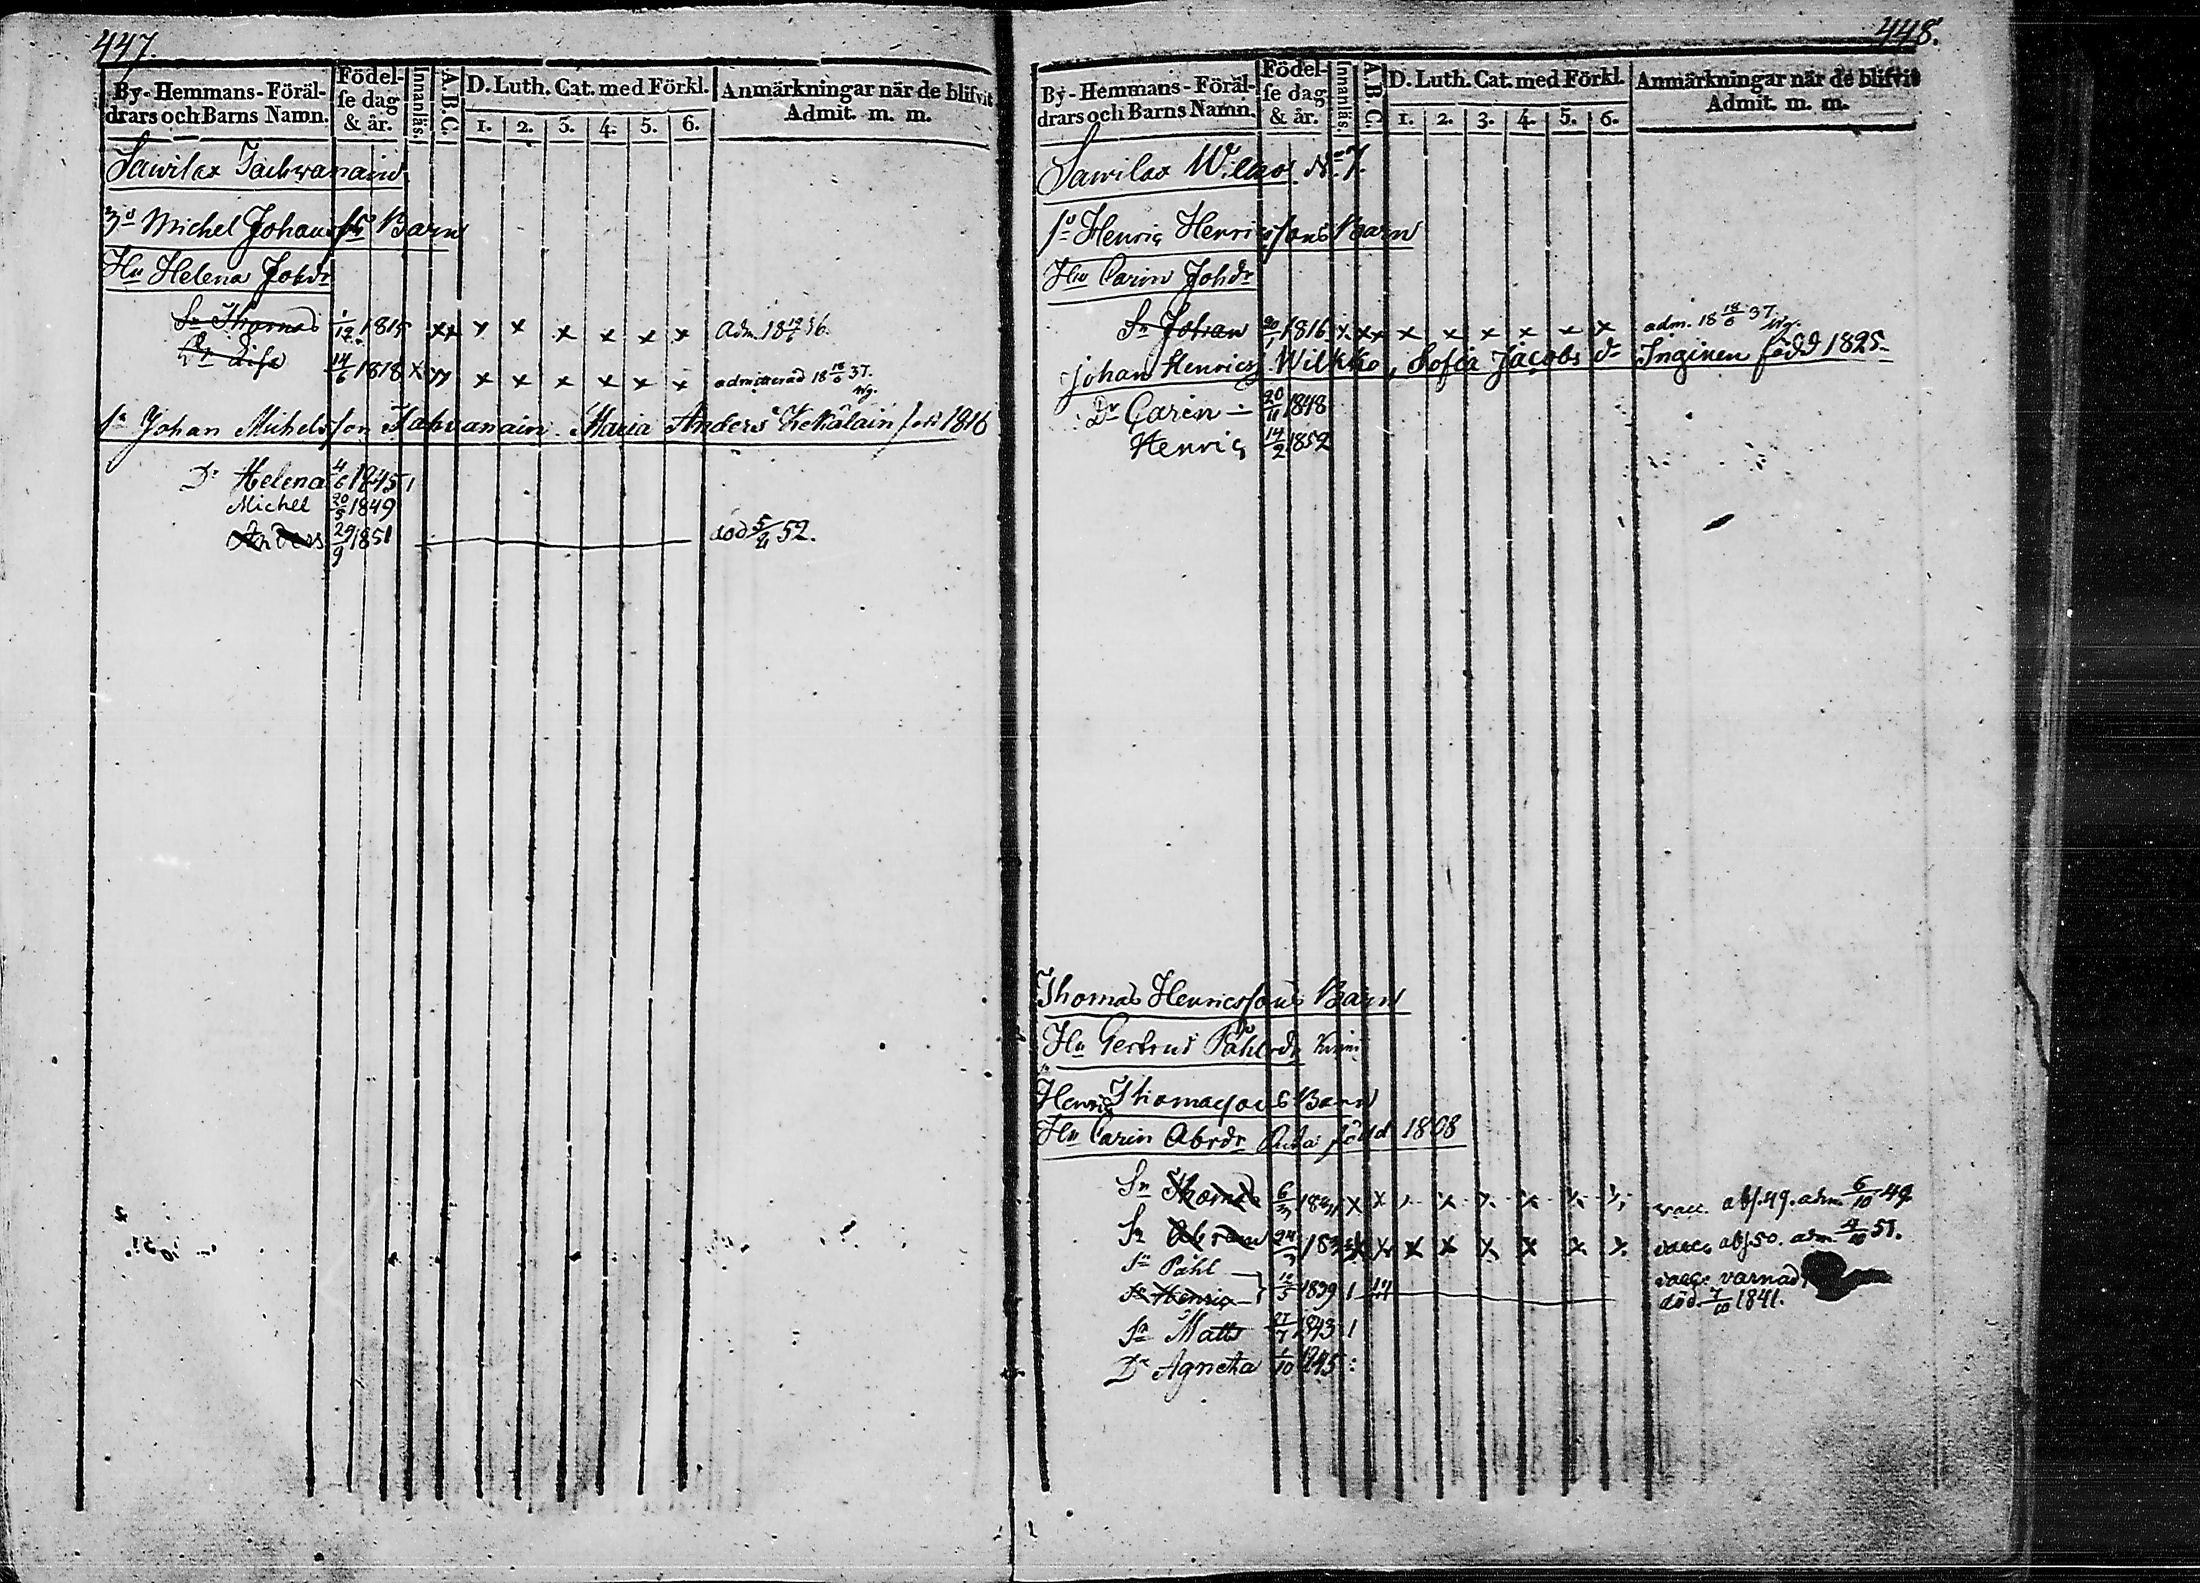 447.
By-Hemmans-Föräl-
drars och Barns Namn.
Födel-
se dag
& år.
Innanläs.
A. B. C.
D. Luth. Cat. med Förkl.
1. 2. 3. 4. 5. 6.
Anmärkningar når de blifvit
Admit. m. m.
Sawilax
Michel Johans Barn
Hu Helena Johdr
Sn Thomas 1/12 1815 xx x x x x x x Adm. 18
Dr Lisa 14/6 1818 x x x x x x x admitterad 18 18/6 37.
Johan Michelsson Maria Anders Kekäläin 1816
Dr Helena 4/6 1845
Michel 20/5 1849
Anders 29/9 1851 död 52.
448.
By-Hemmans-Föräl-
drars och Barns Namn.
Födel-
se dag
& år.
Innanläs.
A. B. C.
D. Luth. Cat. med Förkl.
1. 2. 3. 4. 5. 6.
Anmärkningar når de blifvit
Admit. m. m.
Sawilax No 7.
Henric Henricssons Barn
Hu Carin Johdr
Sn Johan 1816 x xx x x x x x x adm. 18 18/6 37.
Johan Henrics Wilkko, Sofia Jacobs dr Inginen född 1825.
Dr Carin 20/11 1848
Henric 14/2 1852
Thomas Henricssons Barn
Hu Gertrud Påhlsdr
Henric Thomassons Barn
Hu Carin Abrdr född 1808
Sn Thomas x x x x x x x vacc. abs. 49. adm. 6/10 49
Sn Abram x x x x x x x x vacc. abs 50. adm. 51.
Sn Påhl vacc. varnad
Sn Henric 1839 död 7/10 1841.
Sn Matts 27/7 1843
Dr Agneta 1/10 1845